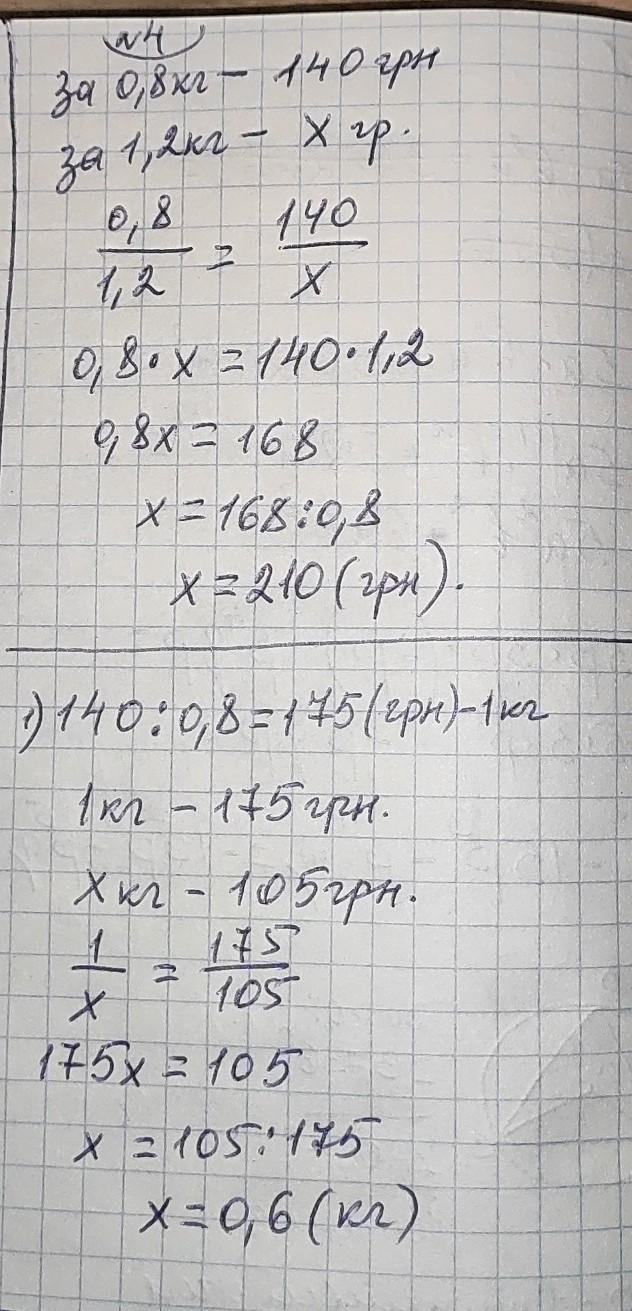 №4
за 0,8кг – 140 грн
за 1,2кг – х гр.
0,8/1,2 = 140/х
0,8·х = 140·1,2
0,8х = 168
х = 168:0,8
х = 210 (грн).
1) 140:0,8 = 175 (грн) – 1кг
1кг – 175 грн.
х кг – 105 грн.
1/х = 175/105
175х = 105
х = 105:175
х = 0,6 (кг)